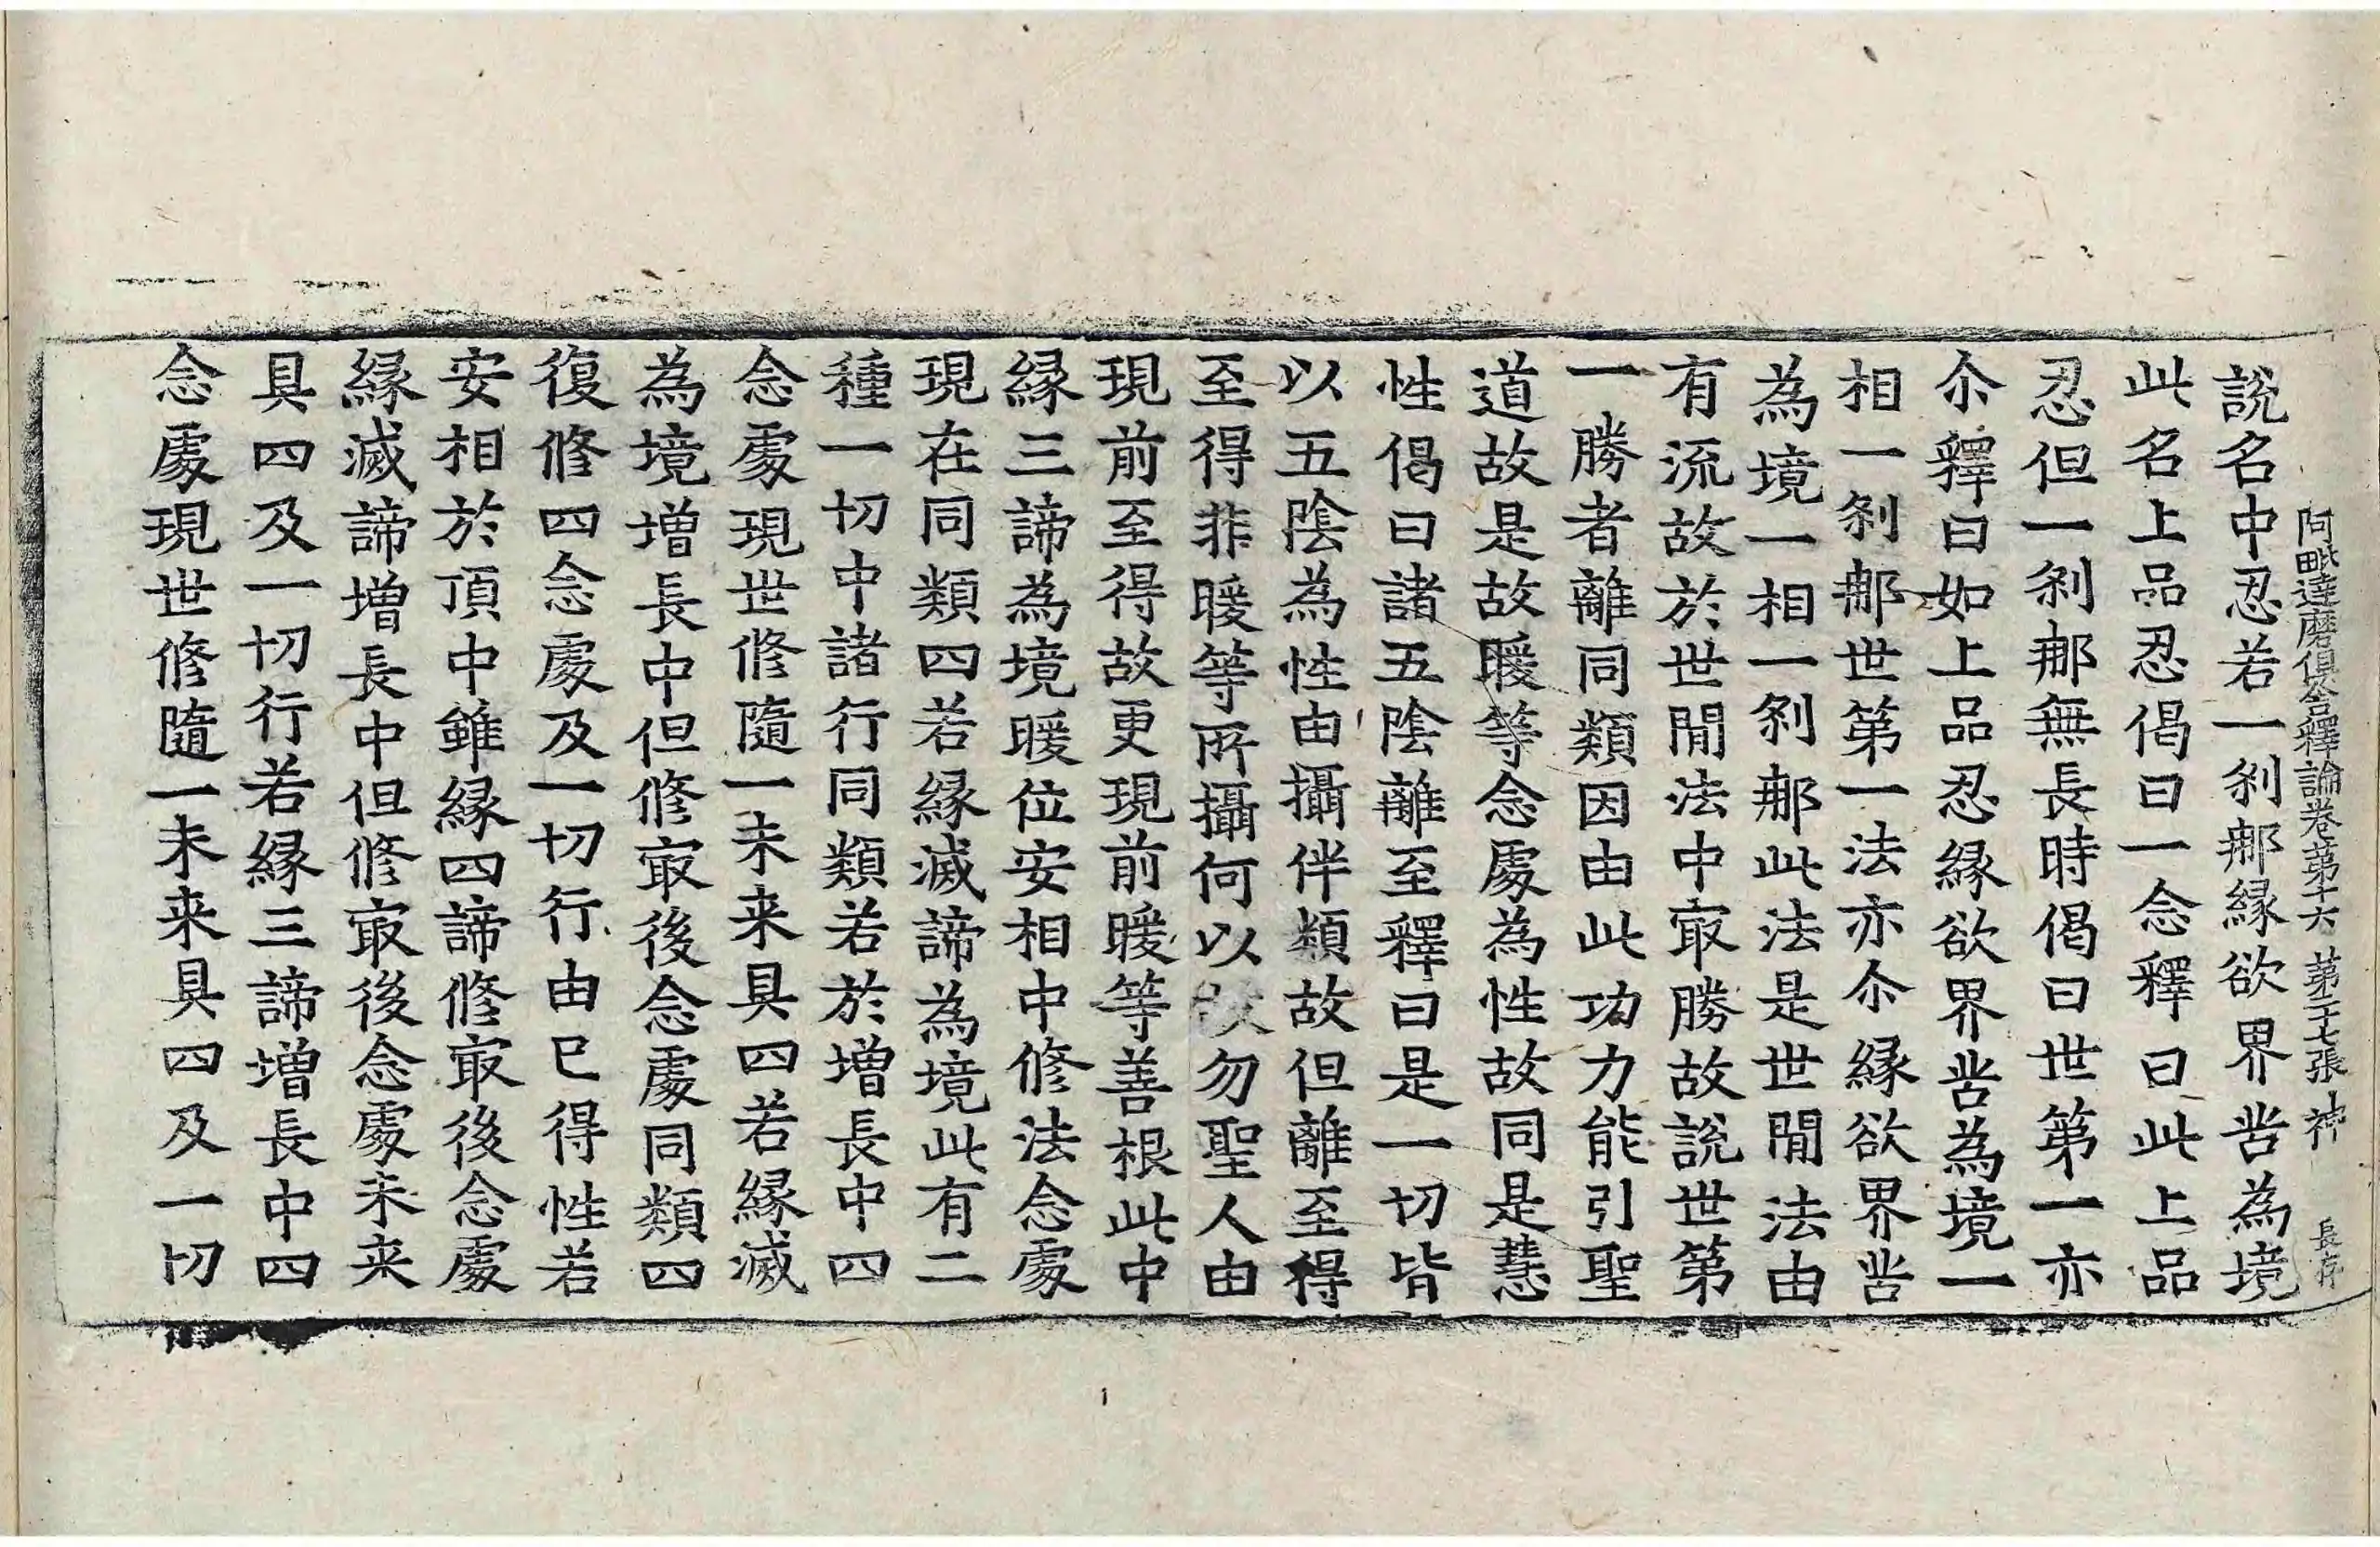 阿毗達磨俱舍釋論卷第十六 第二十七張 神 長存
說名中忍若一剎那緣欲界苦為境
此名上品忍偈曰一念釋曰此上品
忍但一剎那無長時偈曰世第一亦
尒釋曰如上品忍緣欲界苦為境一
相一剎那世第一法亦尒緣欲界苦
為境一相一剎那此法是世閒法由
有流故於世閒法中冣勝故說世第
一勝者離同類因由此功力能引聖
道故是故暖等念處為性故同是慧
性偈曰諸五陰離至釋曰是一切皆
以五陰為性由攝伴類故但離至得
至得非暖等所攝何以故勿聖人由
現前至得故更現前暖等善根此中
緣三諦為境暖位安相中修法念處
現在同類四若緣滅諦為境此有二
種一切中諸行同類若於增長中四
念處現世修隨一未来具四若緣滅
為境增長中但修冣後念處同類四
復修四念處及一切行由已得性若
安相於頂中雖緣四諦修冣後念處
緣滅諦增長中但修冣後念處未来
具四及一切行若緣三諦增長中四
念處現世修隨一未来具四及一切